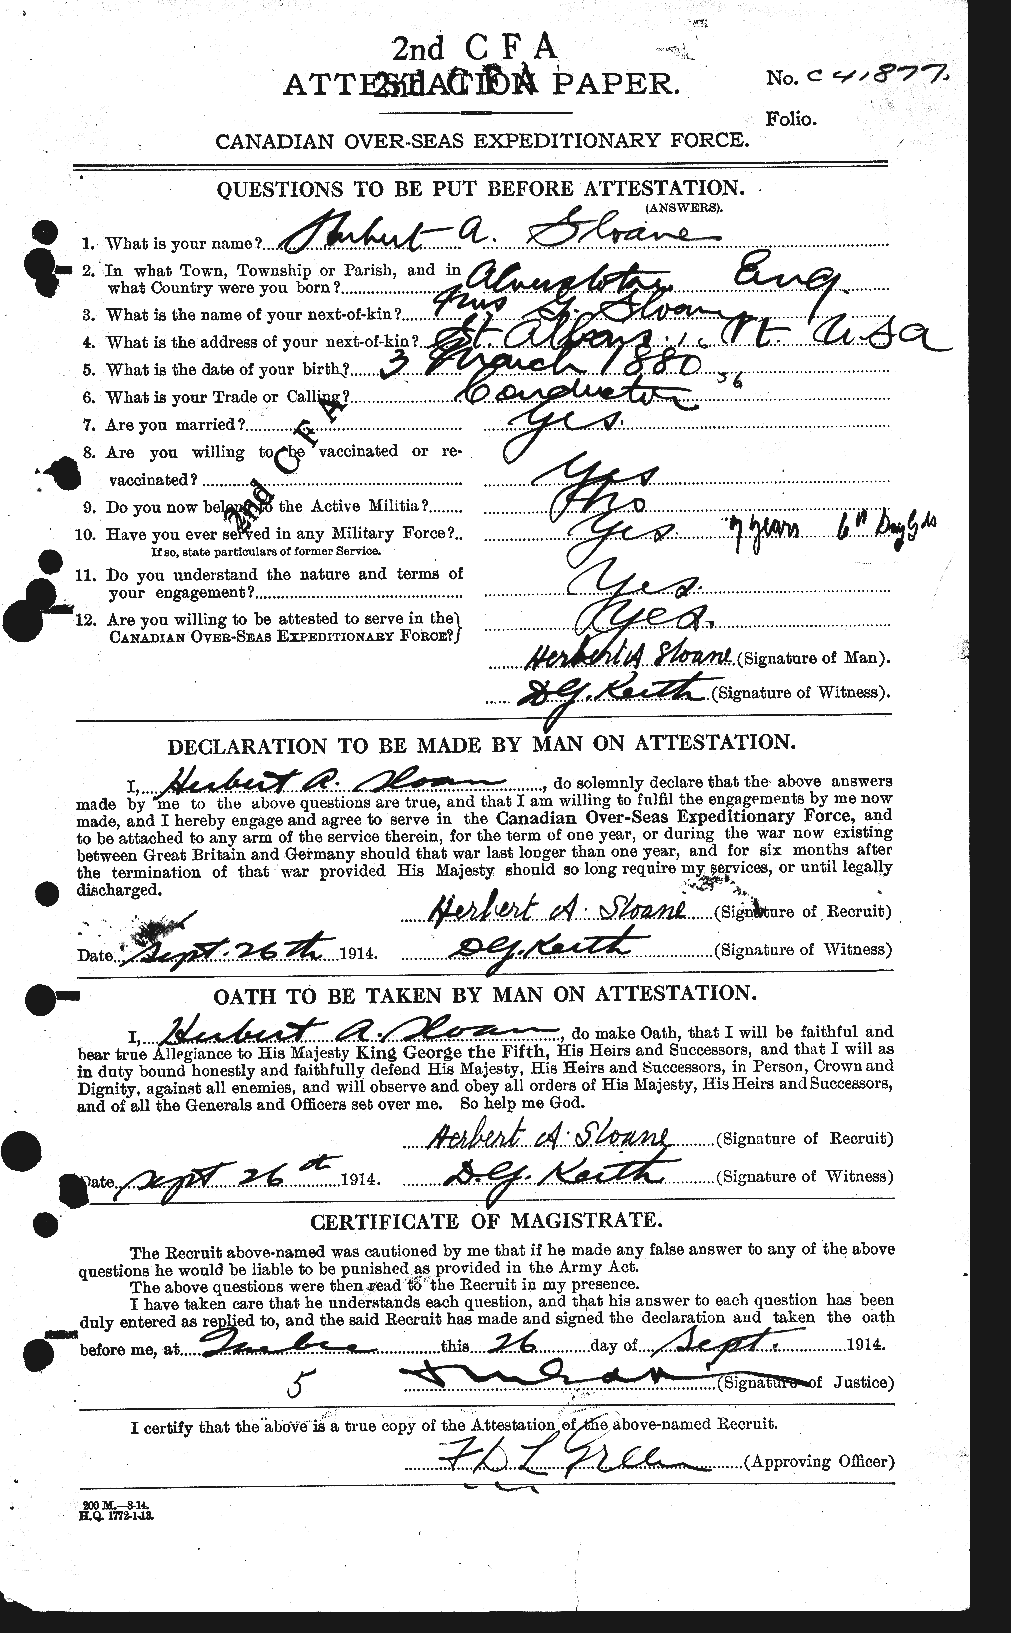 2nd C F A
2nd C F A
ATTESTATION PAPER.
No. C 41,877
Folio.
CANADIAN OVER-SEAS EXPEDITIONARY FORCE.
QUESTIONS TO BE PUT BEFORE ATTESTATION.
(ANSWERS).
1. What is your name? Herbert A. Sloane
2. In what Town, Township or Parish, and in what Country were you born? Eng.
3. What is the name of your next-of-kin? Mrs G. Sloan
4. What is the address of your next-of-kin? St Albans, Vt. USA
5. What is the date of your birth? 3 March 1880
6. What is your Trade or Calling? Conductor 56
7. Are you married? Yes.
8. Are you willing to be vaccinated or re-
vaccinated? Yes
2nd C F A
9. Do you now belong to the Active Militia? No
10. Have you ever served in any Military Force? Yes. 7 years 6th D Gds
If so, state particulars of former Service.
11. Do you understand the nature and terms of
your engagement? Yes.
12. Are you willing to be attested to serve in the
CANADIAN OVER-SEAS EXPEDITIONARY FORCE? Yes.
Herbert A Sloane (Signature of Man).
D.G. Keith (Signature of Witness).
DECLARATION TO BE MADE BY MAN ON ATTESTATION.
I, Herbert A. Sloan, do solemnly declare that the above answers
made by me to the above questions are true, and that I am willing to fulfil the engagements by me now
made, and I hereby engage and agree to serve in the Canadian Over-Seas Expeditionary Force, and
to be attached to any arm of the service therein, for the term of one year, or during the war now existing
between Great Britain and Germany should that war last longer than one year, and for six months after
the termination of that war provided His Majesty should so long require my services, or until legally
discharged.
Herbert A. Sloane (Signature of Recruit)
Date Sept. 26th 1914. D.G. Keith (Signature of Witness)
OATH TO BE TAKEN BY MAN ON ATTESTATION.
I, Herbert A. Sloan, do make Oath, that I will be faithful and
bear true Allegiance to His Majesty King George the Fifth, His Heirs and Successors, and that I will as
in duty bound honestly and faithfully defend His Majesty, His Heirs and Successors, in Person, Crown and
Dignity, against all enemies, and will observe and obey all orders of His Majesty, His Heirs and Successors,
and of all the Generals and Officers set over me. So help me God.
Herbert A. Sloane (Signature of Recruit)
Date Sept 26th 1914. D.G. Keith (Signature of Witness)
CERTIFICATE OF MAGISTRATE.
The Recruit above-named was cautioned by me that if he made any false answer to any of the above
questions he would be liable to be punished as provided in the Army Act.
The above questions were then read to the Recruit in my presence.
I have taken care that he understands each question, and that his answer to each question has been
duly entered as replied to, and the said Recruit has made and signed the declaration and taken the oath
before me, at Quebec this 26 day of Sept. 1914.
5 (Signature of Justice)
I certify that the above is a true copy of the Attestation of the above-named Recruit.
(Approving Officer)
200 M.—8-14.
H.Q. 1772-1-13.